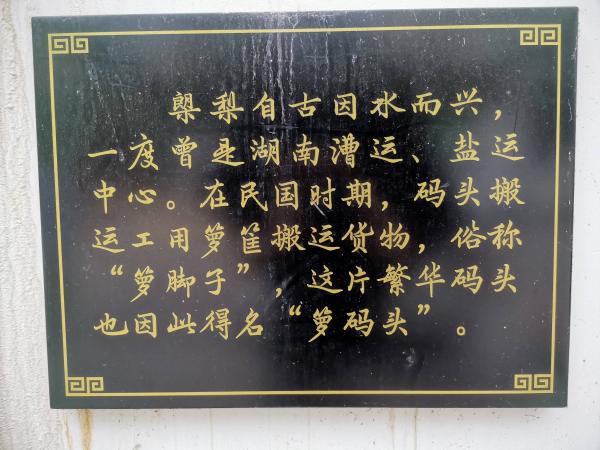 㮾梨自古因水而兴，
一度曾是湖南漕运、盐运
中心。在民国时期，码头搬
运工用箩筐搬运货物，俗称
“箩脚子”，这片繁华码头
也因此得名“箩码头”。